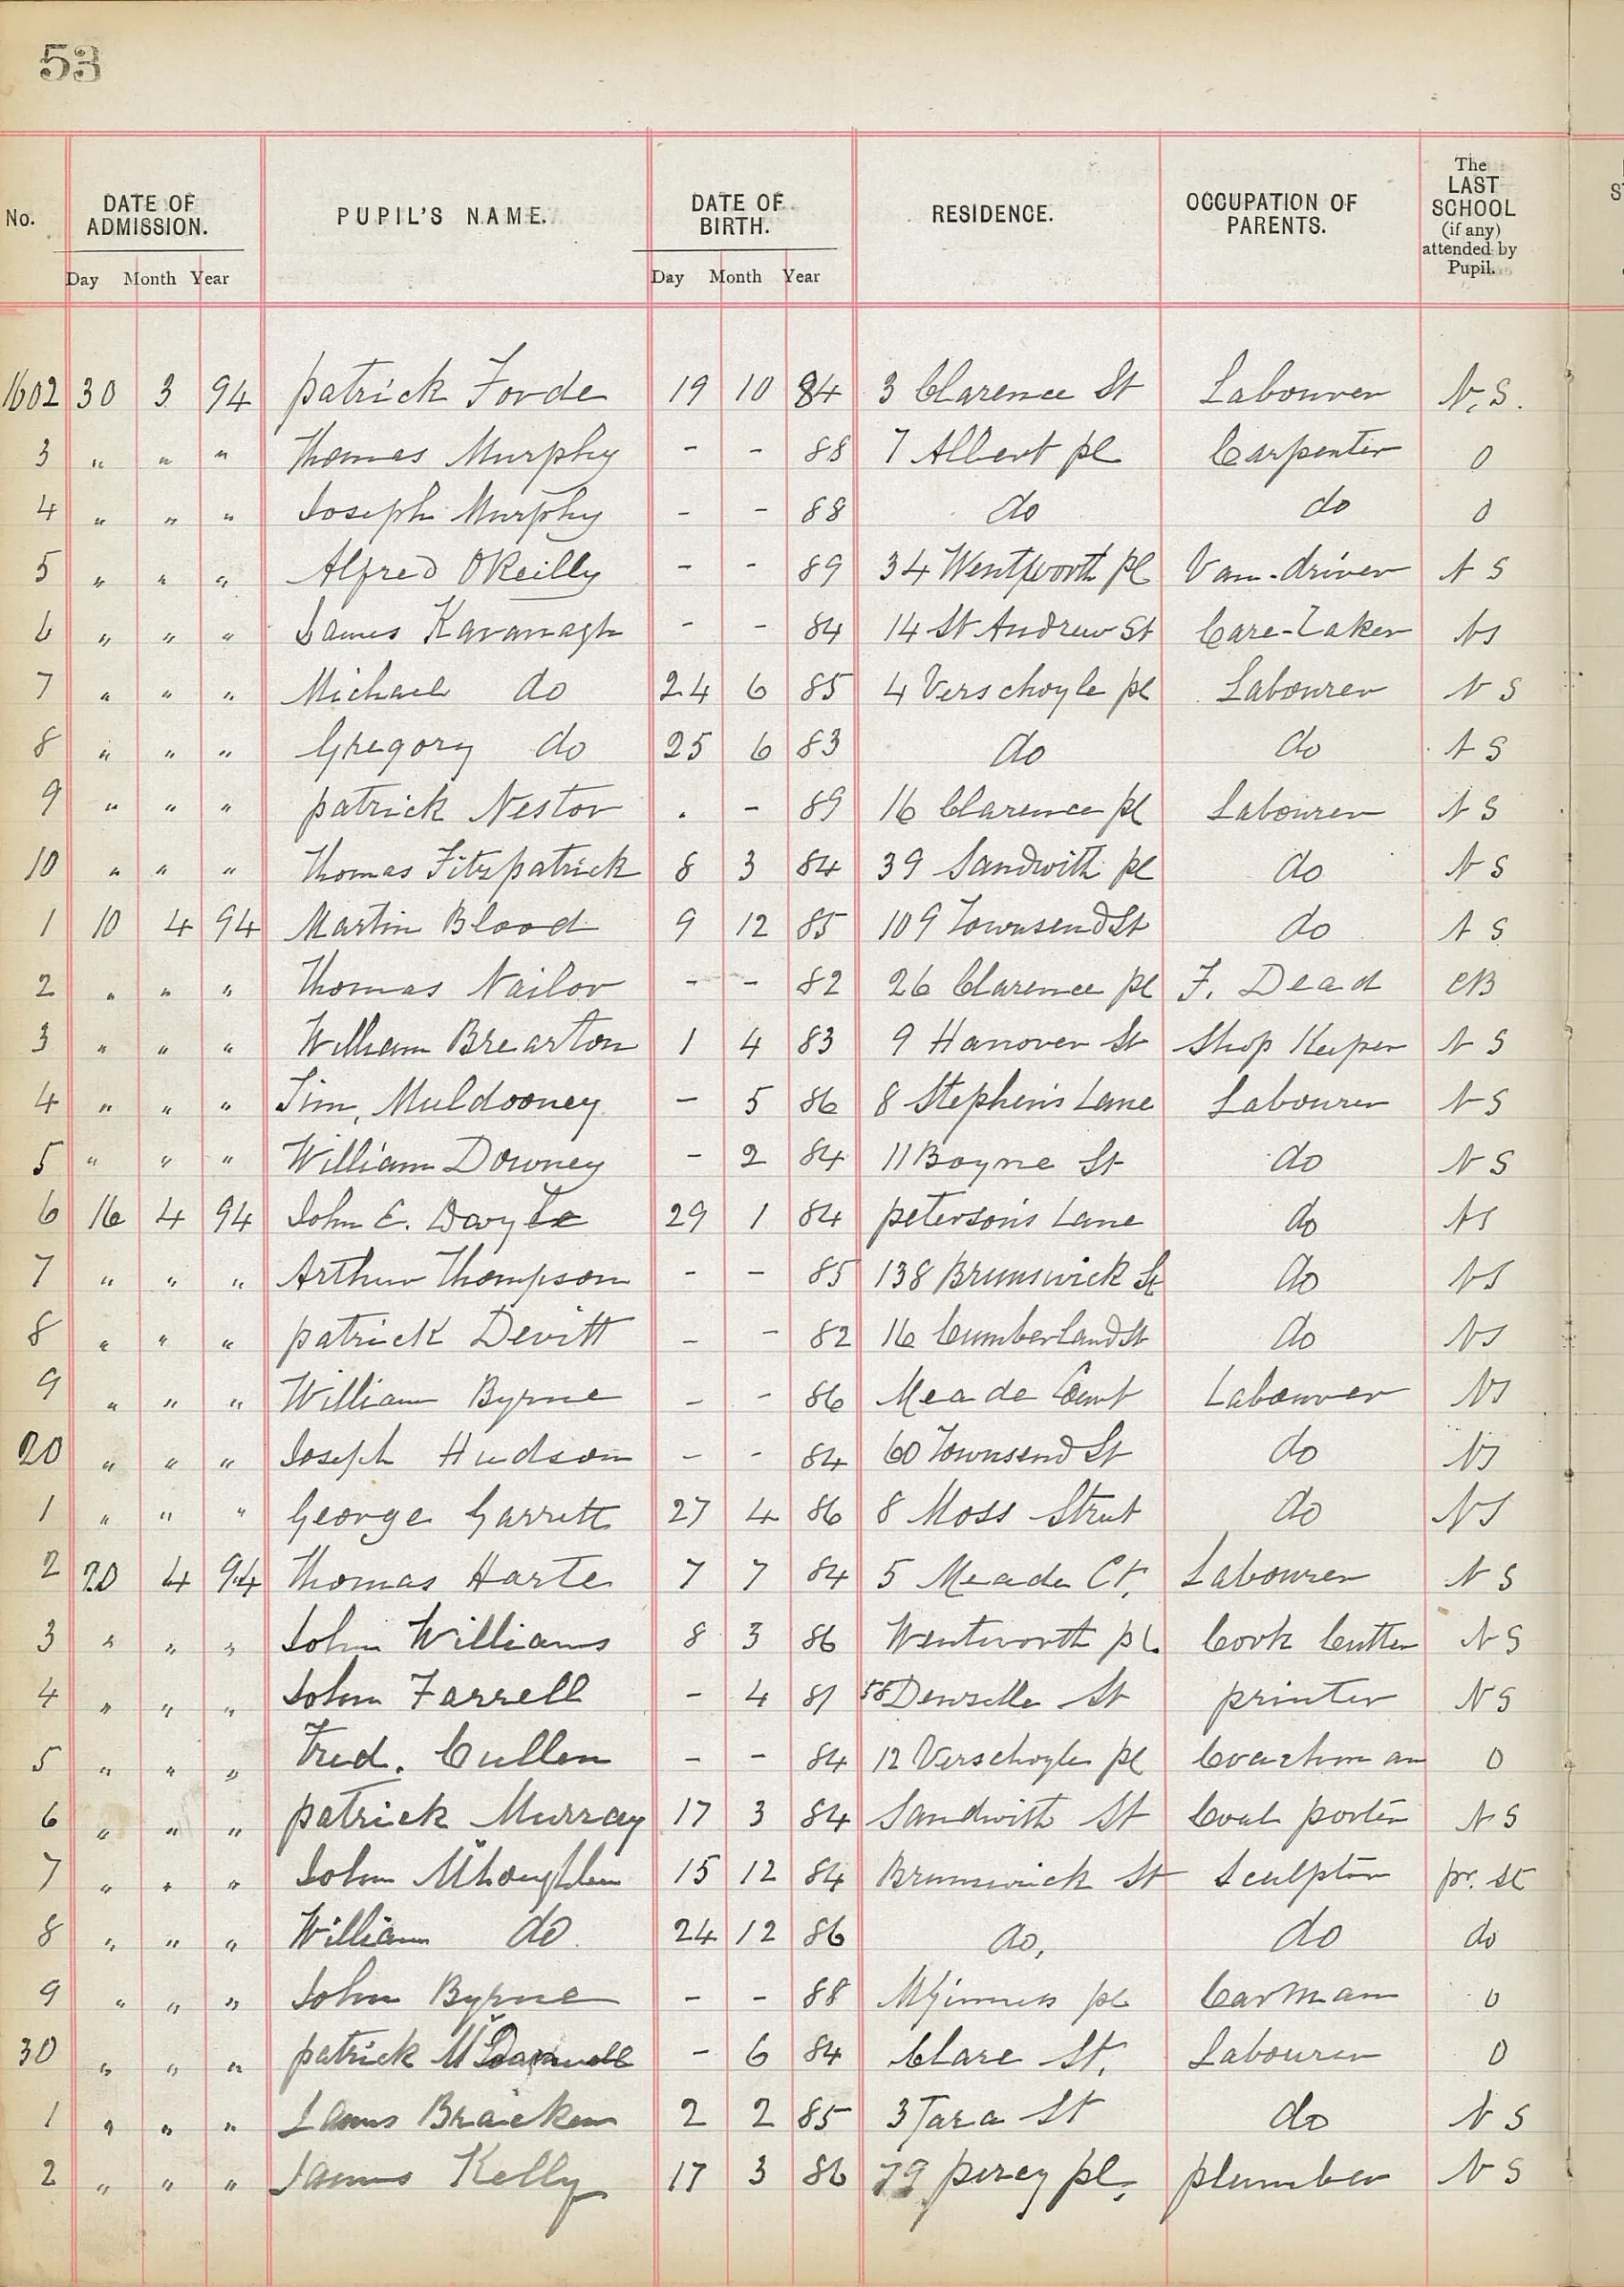 53
No. DATE OF ADMISSION. PUPIL'S NAME. DATE OF BIRTH. RESIDENCE. OCCUPATION OF PARENTS. The LAST SCHOOL (if any) attended by Pupil.
Day Month Year Day Month Year
1602 30 3 94 patrick Forde 19 10 84 3 Clarence St Labourer N.S.
3 " " " Thomas Murphy - - 88 7 Albert pl Carpenter 0
4 " " " Joseph Murphy - - 88 do do 0
5 " " " Alfred OReilly - - 89 34 Wentworth pl Van-driver N S
6 " " " James Kavanagh - - 84 14 St Andrew St Care-Taker NS
7 " " " Michael do 24 6 85 4 Verschoyle pl Labourer N S
8 " " " Gregory do 25 6 83 do do N S
9 " " " patrick Nestor . - 89 16 Clarence pl Labourer N S
10 " " " Thomas Fitzpatrick 8 3 84 39 Sandwith pl do N S
1 10 4 94 Martin Blood 9 12 85 109 Townsend St do N S
2 " " " Thomas Nailor - - 82 26 Clarence pl F. Dead CB
3 " " " William Brearton 1 4 83 9 Hanover St Shop Keeper N S
4 " " " Tim, Muldooney - 5 86 8 Stephen's Lane Labourer N S
5 " " " William Downey - 2 84 11 Boyne St do N S
6 16 4 94 John E. Doyle 29 1 84 peterson's Lane do NS
7 " " " Arthur Thompson - - 85 138 Brunswick St do NS
8 " " " patrick Devitt - - 82 16 Cumberland St do NS
9 " " " William Byrne - - 86 Meade Court Labourer NS
20 " " " Joseph Hudson - - 84 60 Townsend St do NS
1 " " " George Garrett 27 4 86 8 Moss Street do NS
2 20 4 94 Thomas Harte 7 7 84 5 Meade Ct. Labourer N S
3 " " " John Williams 8 3 86 Wentworth pl. Cork Cutter N S
4 " " " John Farrell - 4 81 58 Denzille St printer N S
5 " " " Fred. Cullen - - 84 12 Verschoyle pl Coachman 0
6 " " " patrick Murray 17 3 84 Sandwith St Coal porter N S
7 " " " John McLoughlin 15 12 84 Brunswick St Sculptor pr. St
8 " " " William do 24 12 86 do, do do
9 " " " John Byrne - - 88 McGinness pl Carman 0
30 " " " patrick - 6 84 Clare St, Labourer 0
1 " " " James Bracken 2 2 85 3 Tara St do N S
2 " " " James Kelly 17 3 86 79 percy pl, plumber N S